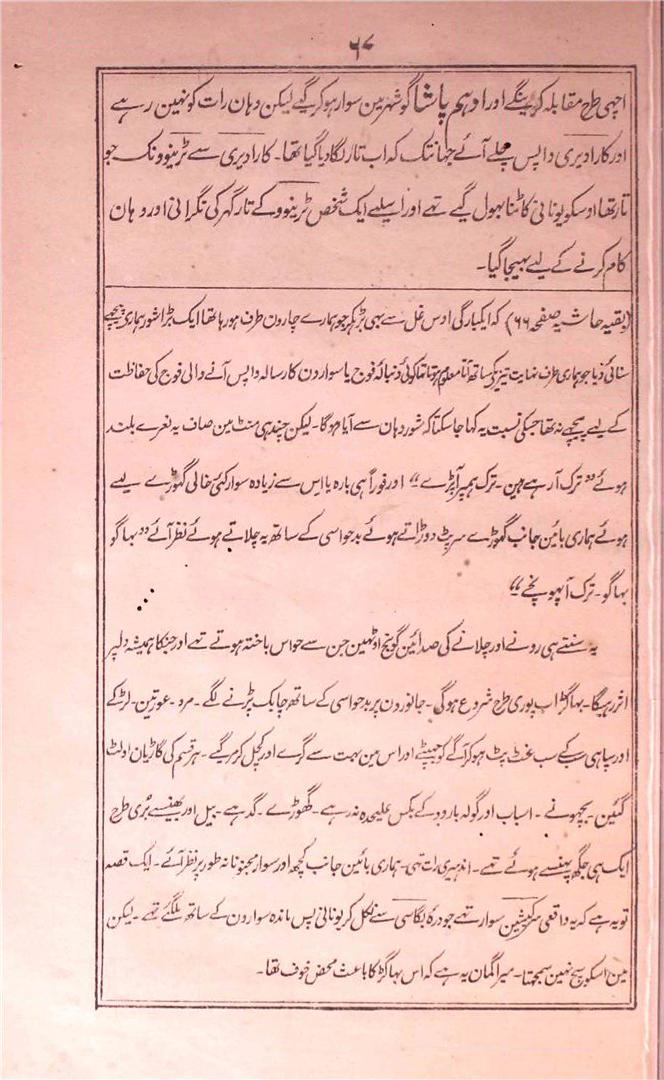 ۶۷
اچھی طرح مقابلہ کرینگے اور ادہم پاشا گو شہر مین سوار ہوکر گیے لیکن وہان رات کو نہین رہے
اور کارادیری واپس چلے آئے جہانتک کہ اب تار لگادیا گیا تھا۔ کارادیری سے ٹرینوو تک جو
تار تھا اوسکو یونانی کاٹنا بھول گیے تھے اور اسلیے ایک شخص ٹرینوو کے تار گھر کی نگرانی اور وہان
کام کرنے کے لیے بھیجا گیا۔
(بقیہ حاشیہ صفحہ ۶۶) کہ ایکبارگی اوس غل سے بھی بڑکر جو ہمارے چارون طرف ہورہا تھا ایک بڑا شور ہماری پیچھے
سنائی دیا جو ہماری طرف نہایت تیزی کے ساتھ آتا معلوم ہوتا تھا کوئی دنبالہ فوج یا سوارون کا رسالہ واپس آنے والی فوج کی حفاظت
کے لیے پیچھے نہ تھا جسکی نسبت یہ کہا جاسکتا کہ شور وہان سے آیا ہوگا۔ لیکن چند ہی منٹ مین صاف یہ نعرے بلند
ہوئے ”ترک آرہے ہین۔ ترک ہمپر آپڑے“ اور فوراً ہی بارہ یا اس سے زیادہ سوار کئی خالی گھوڑے لیے
ہوئے ہماری بائین جانب گھوڑے سرپٹ دوڑاتے ہوئے بدحواسی کے ساتھ یہ چلاتے ہوئے نظر آئے ”بھاگو
بھاگو۔ ترک آپہونچے“
یہ سنتے ہی رونے اور چلانے کی صدائین گونج اوٹھین جن سے حواس باختہ ہوتے تھے اور جنکا ہمیشہ دلپر
اثر رہیگا۔ بھاگڑ اب پوری طرح شروع ہوگی۔ جانورون پر بدحواسی کے ساتھ چابک پڑنے لگے۔ مرد۔ عورتین۔ لڑکے
اور سپاہی سب کے سب غٹ پٹ ہوکر آگے کو جھپٹے اور اس مین بہت سے گرے اور کچل کر مرگیے۔ ہر قسم کی گاڑیان اولٹ
گئین۔ بچھونے۔ اسباب اور گولہ بارود کے بکس علیحدہ نہ رہے۔ گھوڑے۔ گدہے۔ بیل اور بھینسے بُری طرح
ایک ہی جگہ پھنسے ہوئے تھے۔ اندہیری رات تھی۔ ہماری بائین جانب کچھ اور سوار مجنونانہ طور پر نظر آئے۔ ایک قصہ
تو یہ ہے کہ یہ واقعی سرکیشین سوار تھے جو درۂ بگاسی سے نکل کر یونانی پس ماندہ سوارون کے ساتھ ملگئے تھے۔ لیکن
مین اسکو سچ نہین سمجھتا۔ میرا گمان یہ ہے کہ اس بھاگڑ کا باعث محض خوف تھا۔